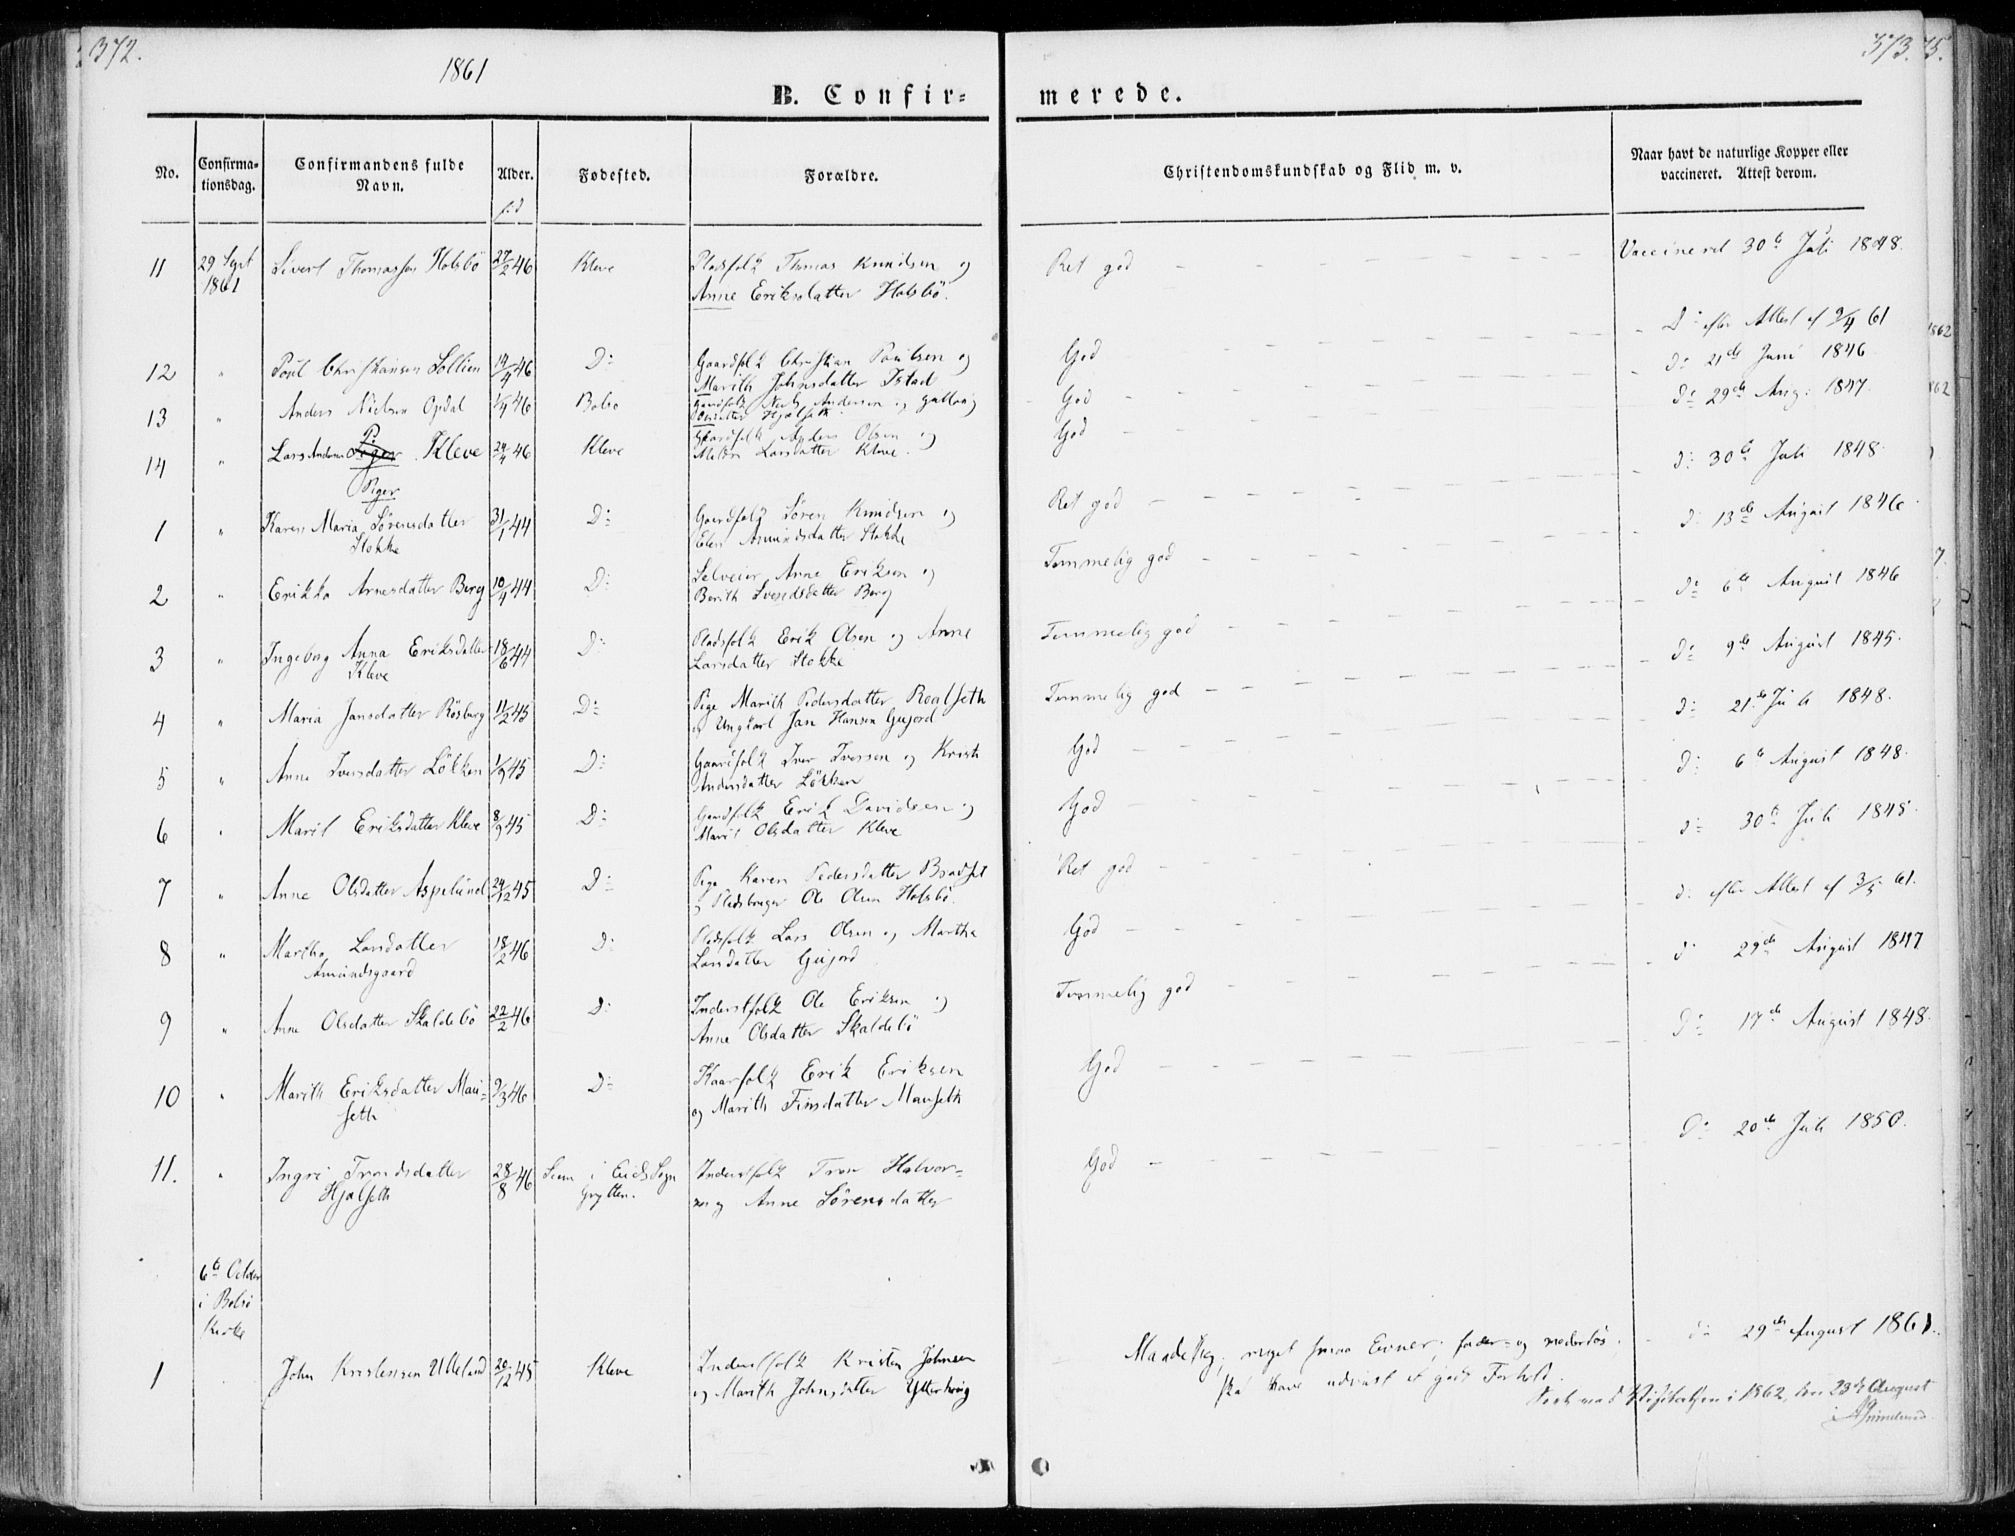 372.
1861
B. Confir=
No.
Confirma-
tionsdag.
Confirmandens fulde
Navn.
Alder.
Fødested.
Forældre.
11 29 Sept 1861 Sivert Thomassen Holsbö 27/2 46 Kleve Pladsfolk Thomas Knudsen og
Anne Eriksdatter Holsbö.
12 " Poul Christiansen Sollien 14/4 46 D: Gaardfolk Christian Poulsen og
Marith Johnsdatter Istad
13 " Anders Nielsen Opdal 46 Bolsö Gaardfolk Andersen og
Hjelseth
14 " Lars Andersen Kleve 24/4 46 Kleve Gaardfolk Anders Olsen og
Larsdatter Kleve.
Piger
1 " Karen Maria Sørensdatter 31/1 44 D: Gaardfolk Sören Knudsen og
Stokke Amundsdatter Stokke
2 " Erikka Arnesdatter Berg 10/4 44 D: Selveier Arne Eriksen og
Berith Svendsdatter Berg
3 " Ingeborg Anna Eriksdatter 18/6 44 D: Pladsfolk Erik Olsen og Anne
Kleve Larsdatter Stokke
4 " Maria Jansdatter Rösberg 11/2 45 D: Pige Marith Pedersdatter Roalseth
og Ungkarl Jan Hansen Gujord
5 " Anne Iversdatter Lökken 1/9 45 D: Gaardfolk Iver Iversen og
Andersdatter Lökken
6 " Marit Eriksdatter Kleve 8/9 45 D: Gaardfolk Erik Davidsen og
Marit Olsdatter Kleve
7 " Anne Olsdatter Aspelund 24/12 45 D: Pige Karen Pedersdatter
og Pladsbruger Ole Olsen Holsbö.
8 " Martha Larsdatter 18/2 46 D: Pladsfolk Lars Olsen og Martha
Amundsgaard Larsdatter Gujord
9 " Anne Olsdatter Skaldebö 22/2 46 D: Inderstfolk Ole Eriksen og
Anne Olsdatter Skaldebö
10 " Marith Eriksdatter Mau- 9/3 46 D: Kaarfolk Erik Eriksen
seth og Marith Finsdatter Mauseth
11. " Ingri Trondsdatter 28/8 46 i Eids Sogn Inderstfolk Tron Halvor-
Hjelseth Grytten. og Anne Sörensdatter
6te October
i Bolsö
Kirke
1 John Kristensen Utleland 20/12 45 Kleve Inderstfolk Kristen Johnsen
og Marith Johnsdatter Ytterhoug
373.
merede.
Christendomskundskab og Flid m. v.
Naar havt de naturlige Kopper eller
vaccineret. Attest derom.
Ret god Vaccineret 30te Juli 1848.
God D: efter Attest af 9/4 61
God D: 21de Juni 1846
God D: 29de Aug: 1847.
Ret god D: 30te Juli 1848.
Temmelig god D: 13de August 1846
Temmelig god D: 6te August 1846
Temmelig god D: 9de August 1845.
God D: 21de Juli 1848.
God D: 6te August 1848.
Ret god D: 30te Juli 1848.
God D: efter Attest af 3/5 61.
Temmelig god D: 29de August 1847
God D: 17de August 1848.
God D: 20de Juli 1850.
Maadelig, meget smaa Evner; fader- og moderløs. D: 29de August 1861.
have udviist et godt Forhold.
i 1862, den 23de August